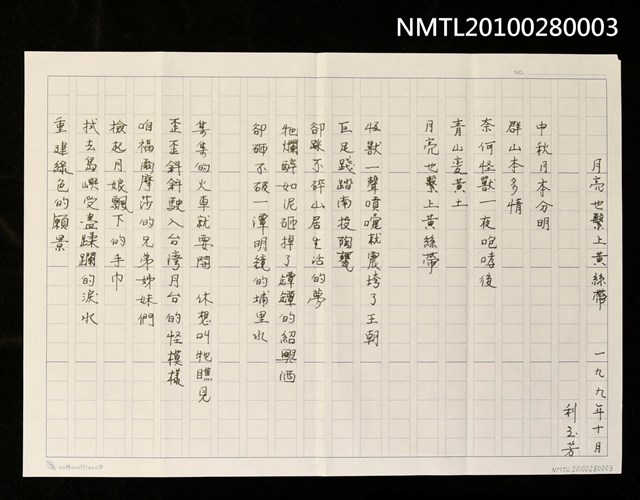 NMTL20100280003
NO.
月亮也繫上黃絲帶　一九九九年十月
利玉芳
中秋月本分明
群山本多情
奈何怪獸一夜咆哮後
青山變黃土
月亮也繫上黃絲帶
怪獸一聲噴嚏就震垮了王朝
巨足踐踏南投陶甕
卻踩不碎山居生活的夢
牠爛醉如泥砸掉了罈罈的紹興酒
卻砸不破一潭明鏡的埔里水
集集的火車就要開　休想叫牠瞧見
歪歪斜斜駛入台灣月台的怪模樣
咱福爾摩莎的兄弟姊妹們
撿起月娘飄下的手巾
拭去島嶼受盡蹂躪的淚水
重建綠色的願景
NMTL20100280003